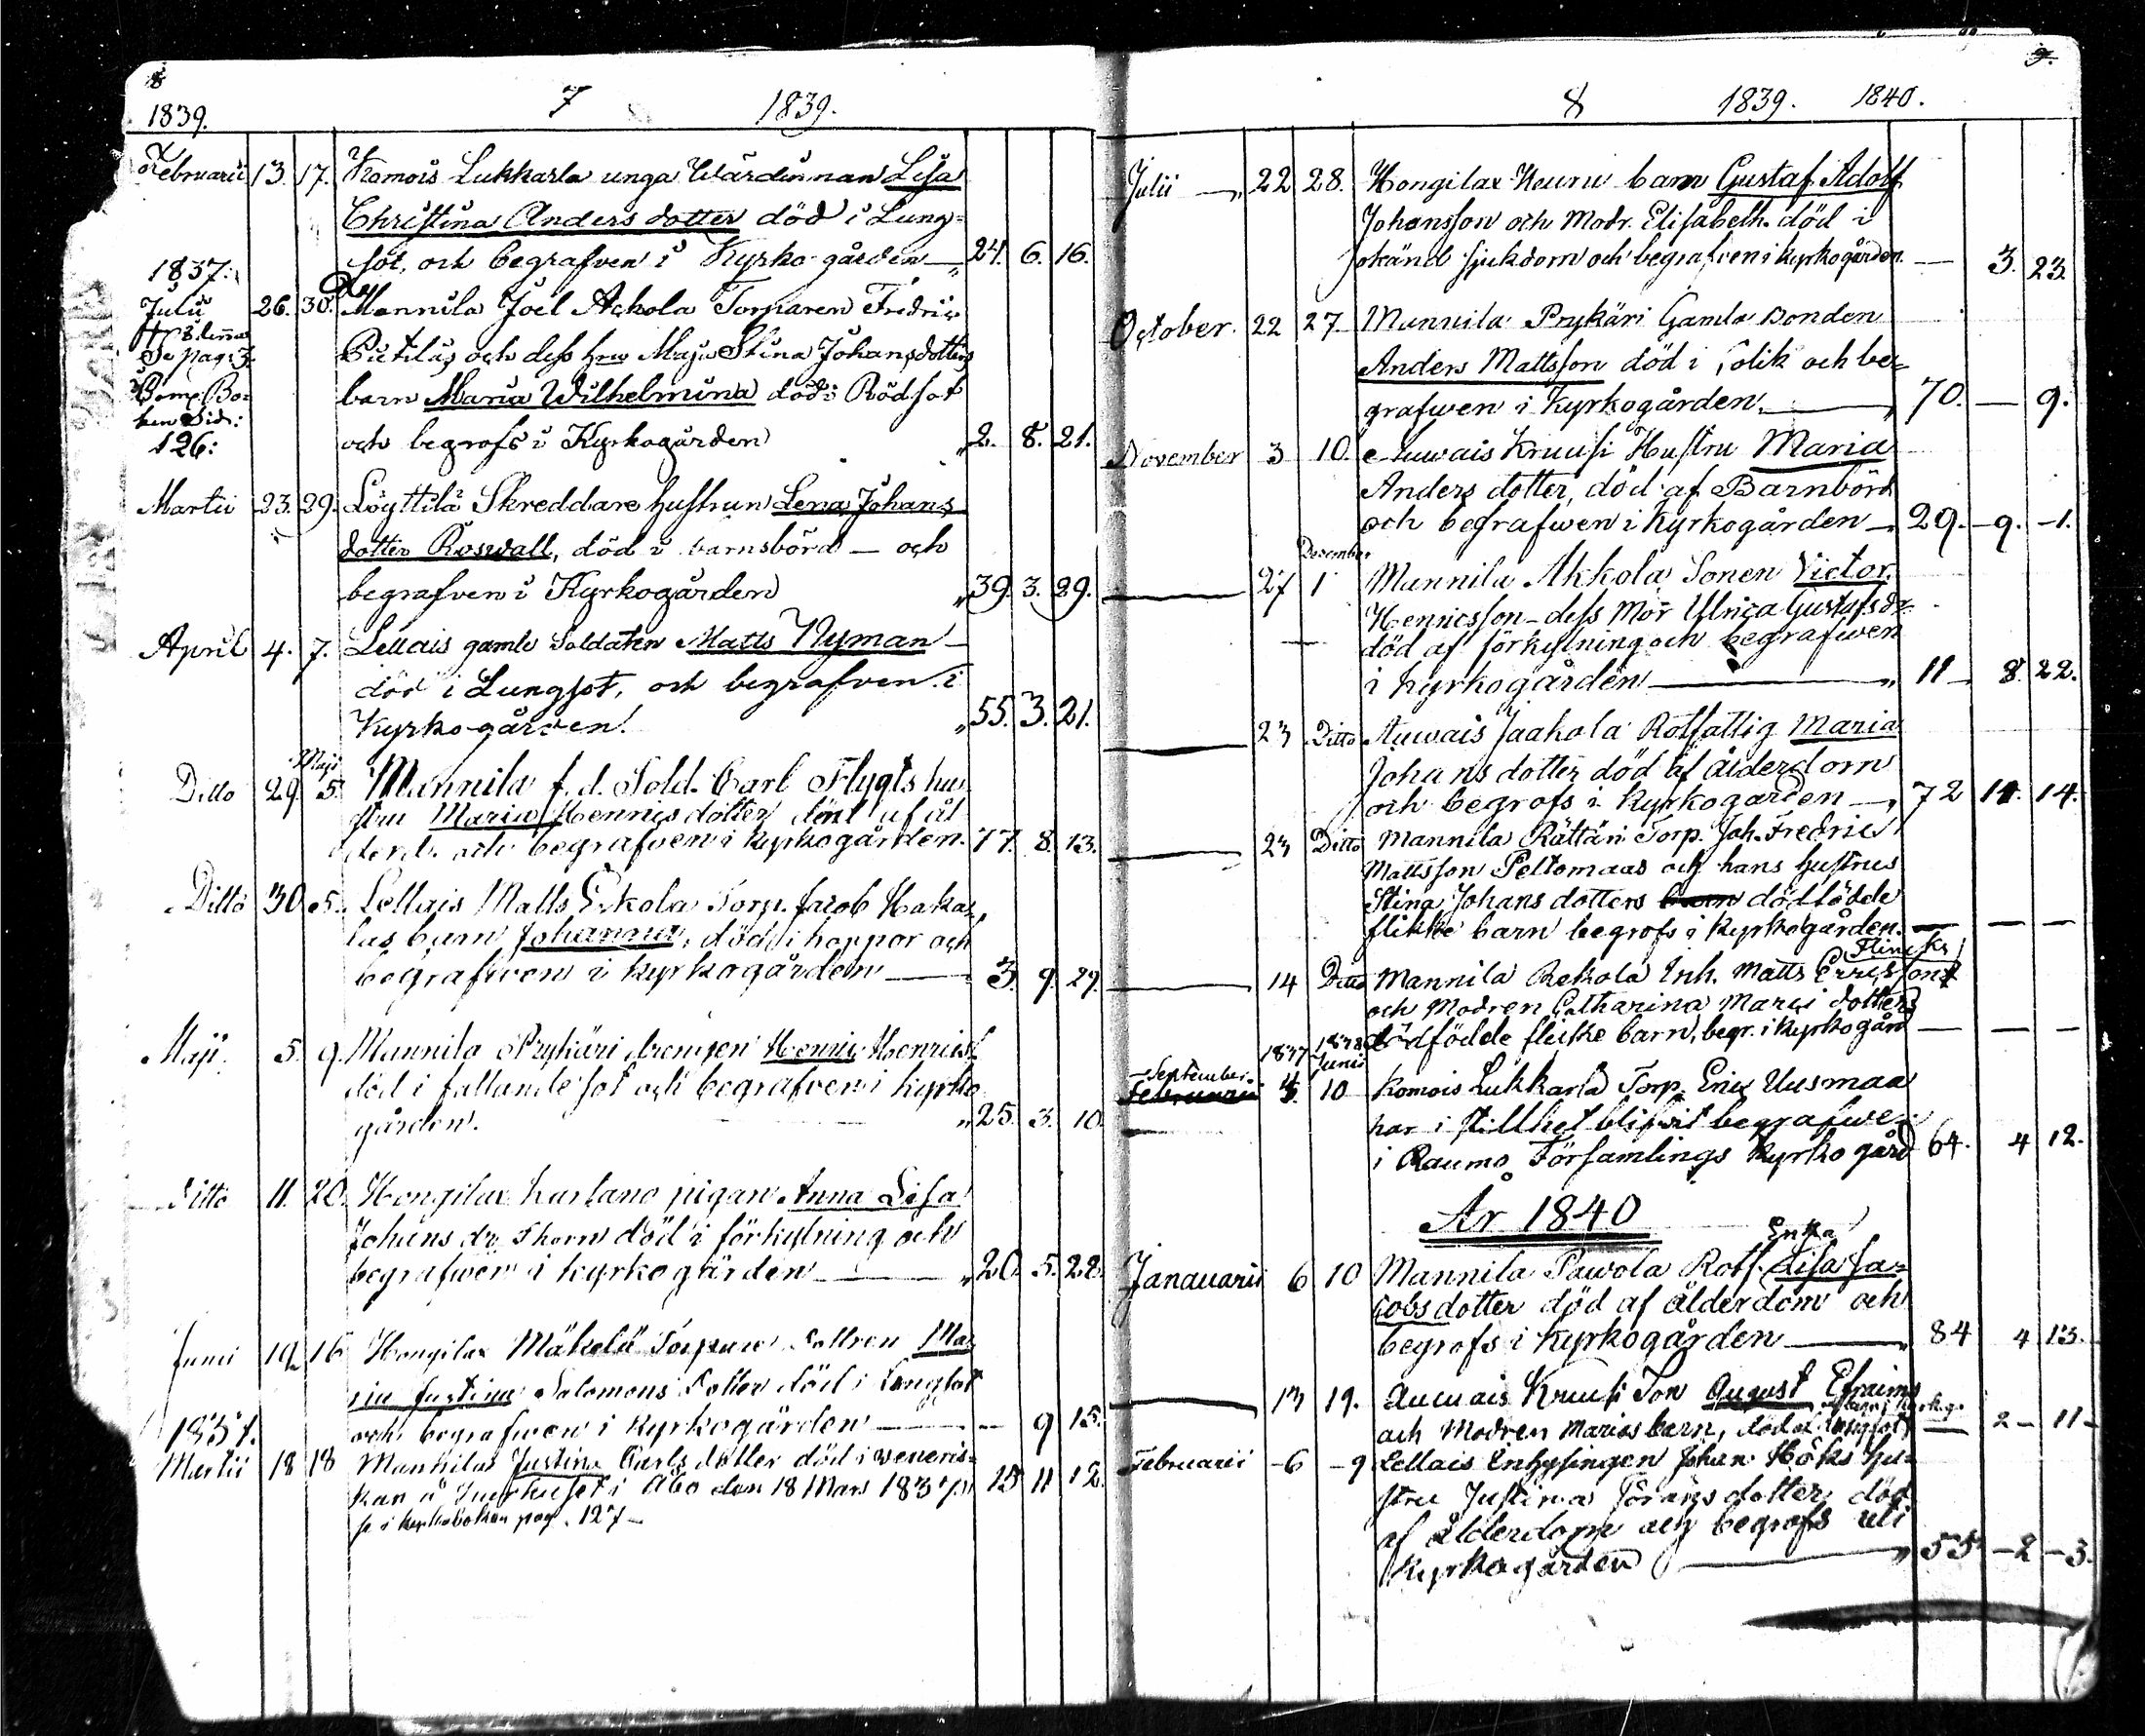 7 1839.
1839.
Februarii 13. 17. Komois Lukkarla unga Wärdinnan Lisa
Christina Anders dotter död i Lung-
sot, och begrafven i Kyrko-gården — 24. 6. 16.
1837:
Julii 26. 30. Mannila Joel Ackola Torparen Fredric
Se pag: 3 och dess hru Maja Stina Johansdotters
Bo- barn Maria Wilhelmina död i Rödsot
ken Sid:
126: och begrofs i Kyrkogården 2. 8. 21.
Martii 23. 29. Löyttilä Skreddare hustrun Lena Johans
dotter Roswall, död i barnsbörd — och
begrafven i Kyrkogården 39. 3. 29.
April 4. 7. Lellais gamle Soldaten Matts Nyman —
död i Lungsot, och begrafven i
Kyrkogården. 55. 3. 21.
Maji
Ditto 29. 5. Mannila f. d. Sold. Carl Flygts hu
stru Maria Hennicsdotter död af ål
derd. och begrafven i kyrkogården. 77. 8. 13.
Ditto 30 5. Lellais Matts Eskola Torp. Jacob Haka-
las barn Johanna, död i koppor och
begrafwen i kyrkogården — 3. 9. 29.
Maji 5. 9. Mannila Prykäri drengen Henric Henricss.
död i fallande sot och begrafven i kyrko
gården. 25. 3. 10.
Ditto 11. 20. Hongilax pigan Anna Lisa
Johans dr Thorn död i förkylning och
begrafwen i kyrkogården — 20. 5. 22.
Junii 12 16 Hongilax Mäkelä Torpare dottren Ma-
ria Justina Salomons dotter död i Lungsot
och begrafwen i kyrkogården — — 9 15.
1837.
Martii 18 18 Mannilas Justina Carls dotter död i weneris-
kan å i Åbo den 18 Mars 1837 15 11 12.
se i kyrkoboken pag. 127 —
9.
8 1839. 1840.
Julii — 22 28. Hongilax Keuru barn Gustaf Adolf
Johansson och Modr. Elisabeth. död i
okänd sjukdom och begrafven i kyrkogården. — 3. 23.
October. 22 27 Mannila Prykäri Gamla Bonden
Anders Mattsson död i Colik och be-
grafwen i Kyrkogården. — 70. — 9.
November 3 10. Auwais Kruusi Hustru Maria
Anders dotter, död af Barnbörd
och begrafwen i Kyrkogården — 29. — 9. — 1.
December
— 27 1 Mannila Akkola Sonen Victor
Henricsson — dess Mor Ulrica Gustafs dr.
död af förkylning och begrafwen
i kyrkogården — 11 — 8. 22.
— 23 Ditto Auwais Jaakola Rotfattig Maria
Johans dotter död af ålderdom
och begrofs i kyrkogården — 72 11. 14.
— 23 Ditto Mannila Rättäri Torp. Joh. Fredric
Mattsson Peltomaas och hans hustrus
Stina Johans dotters barn dödfödde
flikke barn begrofs i Kyrkogården. — — —
Flincks
— 14 Ditto Mannila Rekola Inh. Matts Ericssons
och Modren Catharina Marci dotters
dödfödde flicke barn, begr. i kyrkogård — — —
1837 1838
September. Junii
Februarii 4 10 Komois Lukkarla Torp. Eric Uusmaa
har i stillhet blifwit begrafwen
i Raumo Församlings Kyrko gård 64. 4 12.
År 1840
Enka
Januarii 6 10 Mannila Pawola Rotf. Lisa Ja-
cobs dotter död af ålderdom och
begrofs i kyrkogården — 84 4 13.
— 13 19. Auwais Kruusi Son August Efraims
och Modren Marias barn, död af lungsot — 2 — 11 —
Februarii — 6 — 9 Lellais Inhysingen Johan Höks hu-
stru Justina Görans dotter död
af ålderdom och begrofs uti
Kyrkogården — 55 — 2 — 3.